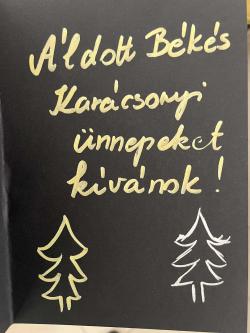 Áldott Békés
Karácsonyi
ünnepeket
kívánok!